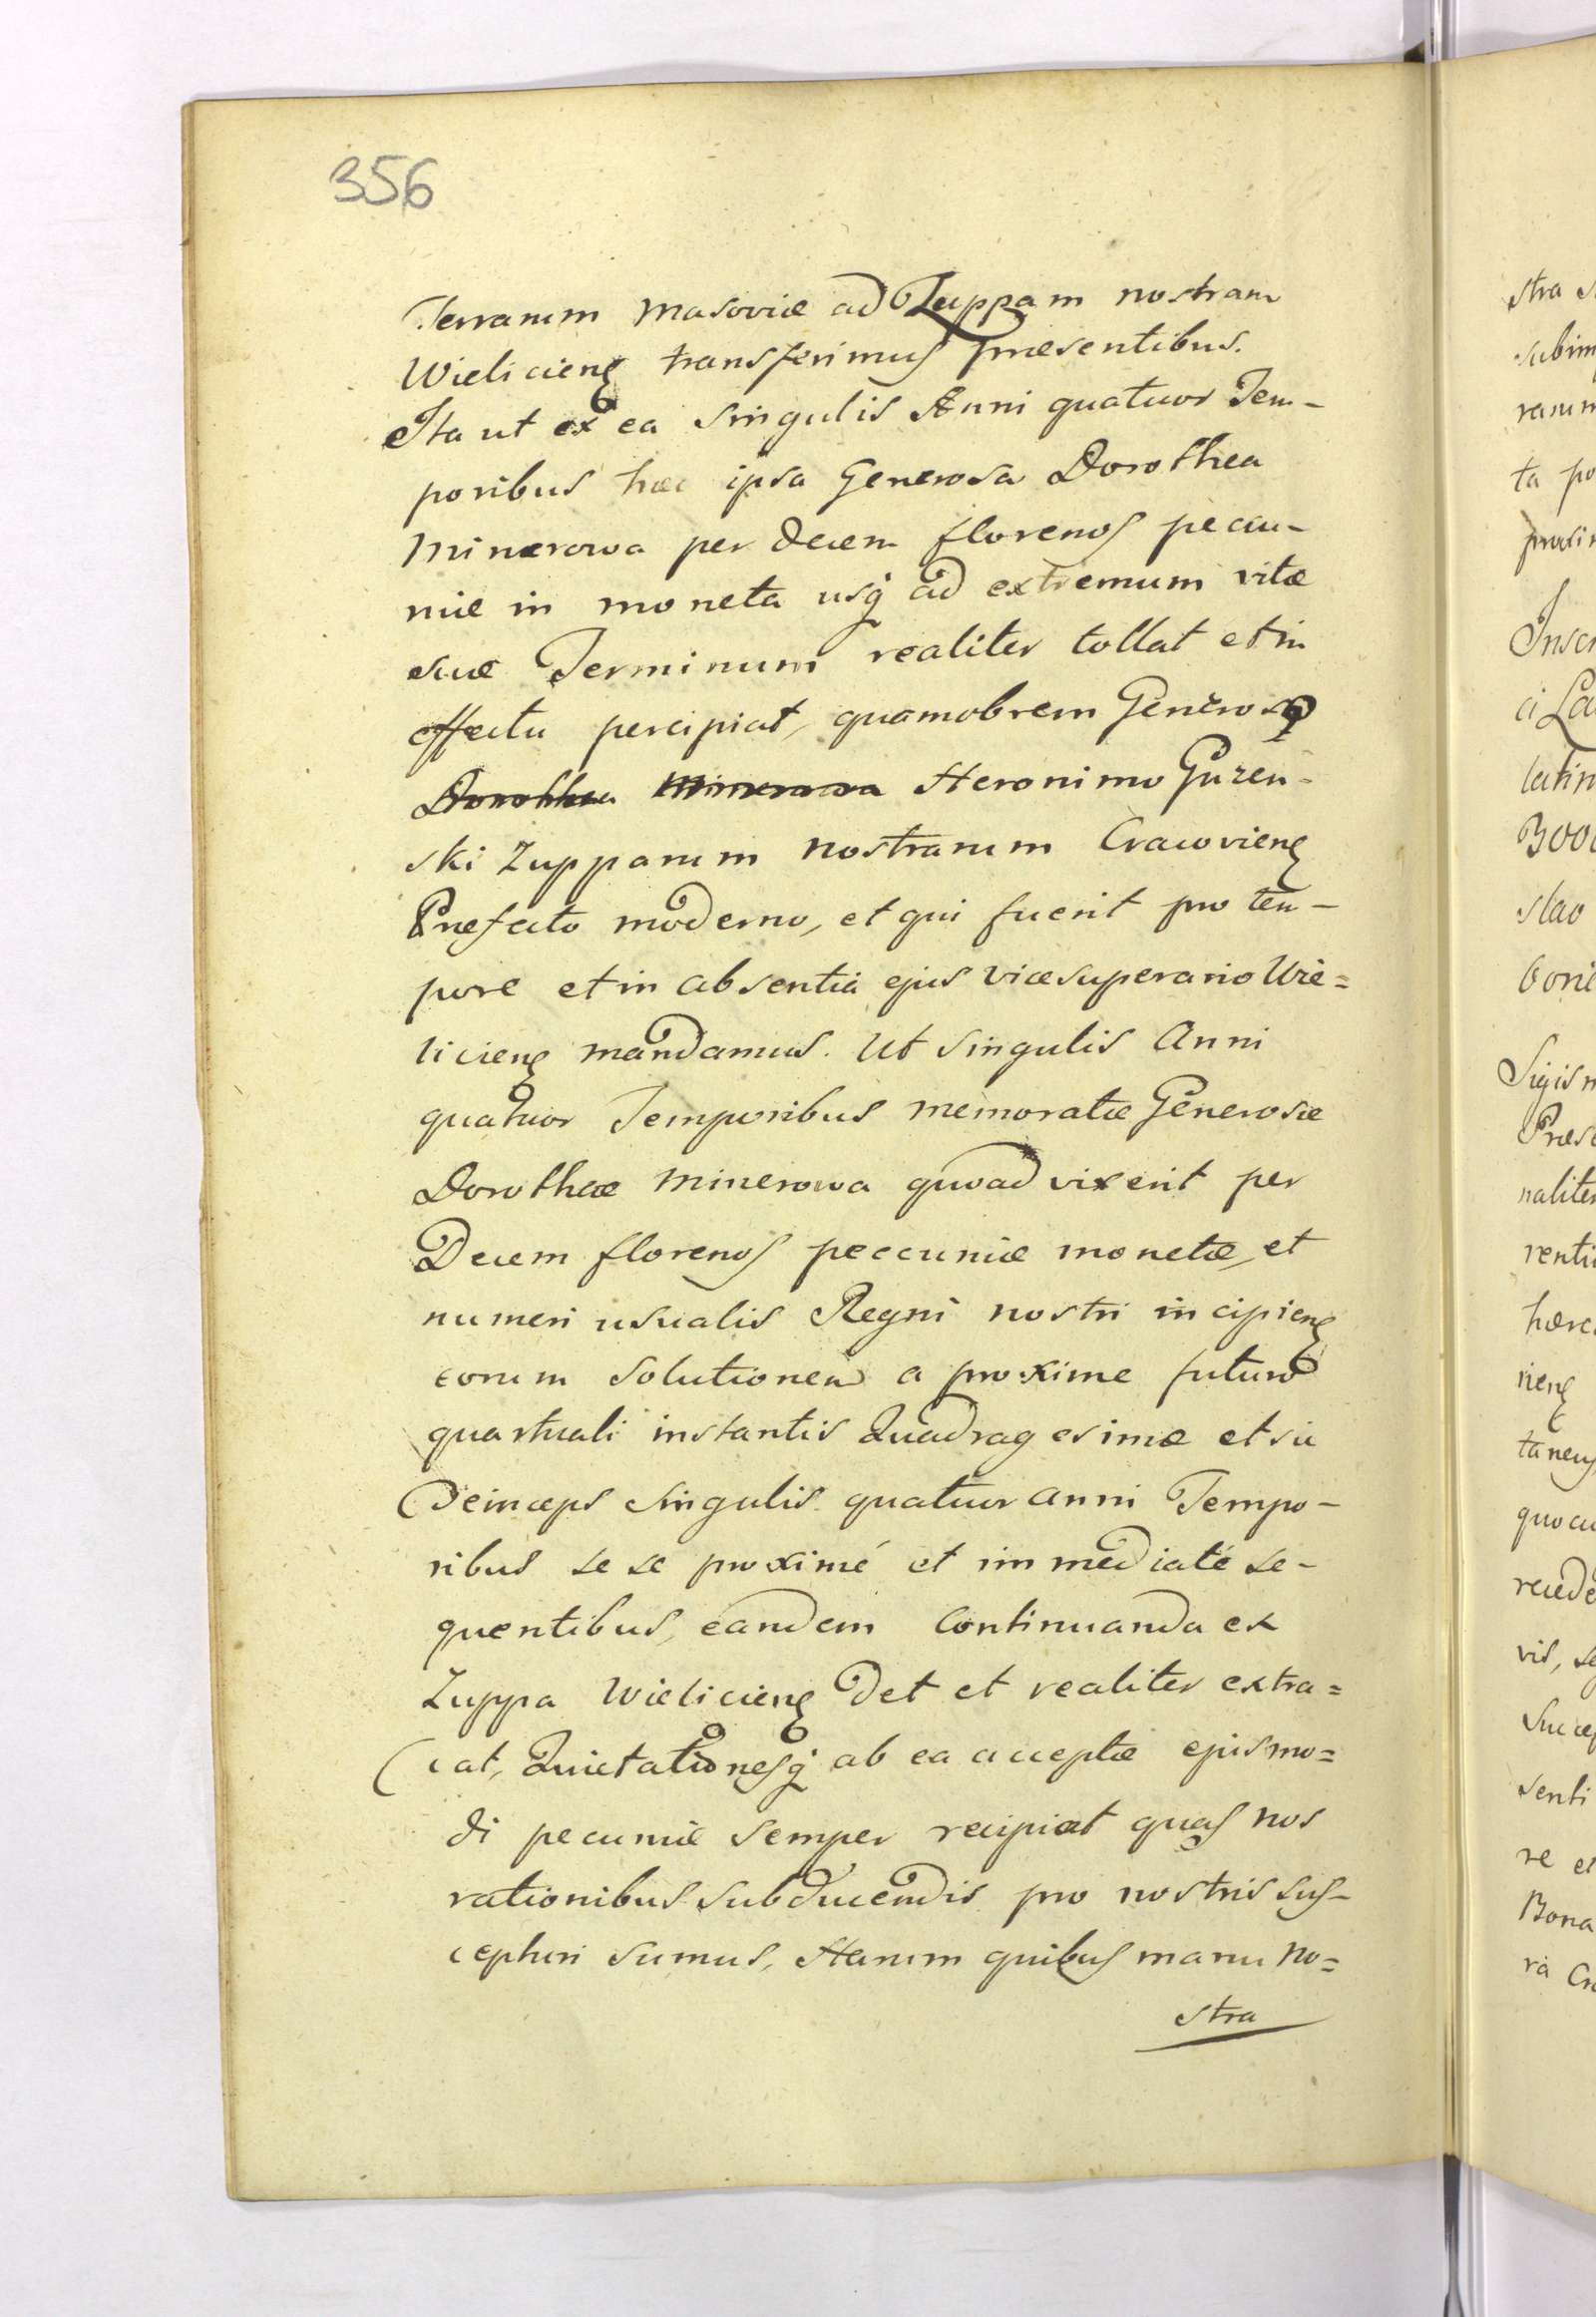 356
Terrarum Masoviæ ad Zuppam nostram
Wielicieng transferimus præsentibus.
Ita ut ex ea singulis Anni quatuor Tem-
poribus hæc ipsa Generosa Dorothea
Minerowa per decem florenos pecu-
niæ in moneta usq ad extremum vitæ
suæ Terminum realiter tollat et in
effectu percipiat, quamobrem Generoso
Dorothea Minerowa Heronimo Guzen-
ski Zupparum nostrarum Cracovieng
Præfecto moderno, et qui fuerit pro tem-
pore et in absentia ejus vicesuperario Wie=
licieng mandamus. Ut singulis Anni
quatuor Temporibus memoratæ Generosæ
Dorotheæ Minerowa quoad vixerit per
Decem florenos peccuniæ monetæ, et
numeri usualis Regni nostri incipieng
eorum solutionem a proxime futuro
quartuali instantis Quadragesimæ et sic
deinceps singulis quatuor anni Tempo-
ribus se se proximé et immediaté se-
quentibus, eandem continuanda ex
Zuppa Wielicieng det et realiter extra=
cat, Quietationesq ab ea acceptæ ejusmo=
di pecuniæ semper recipiat quas nos
rationibus subducendis pro nostris sus-
cepturi sumus, Harum quibus manu no=
stra